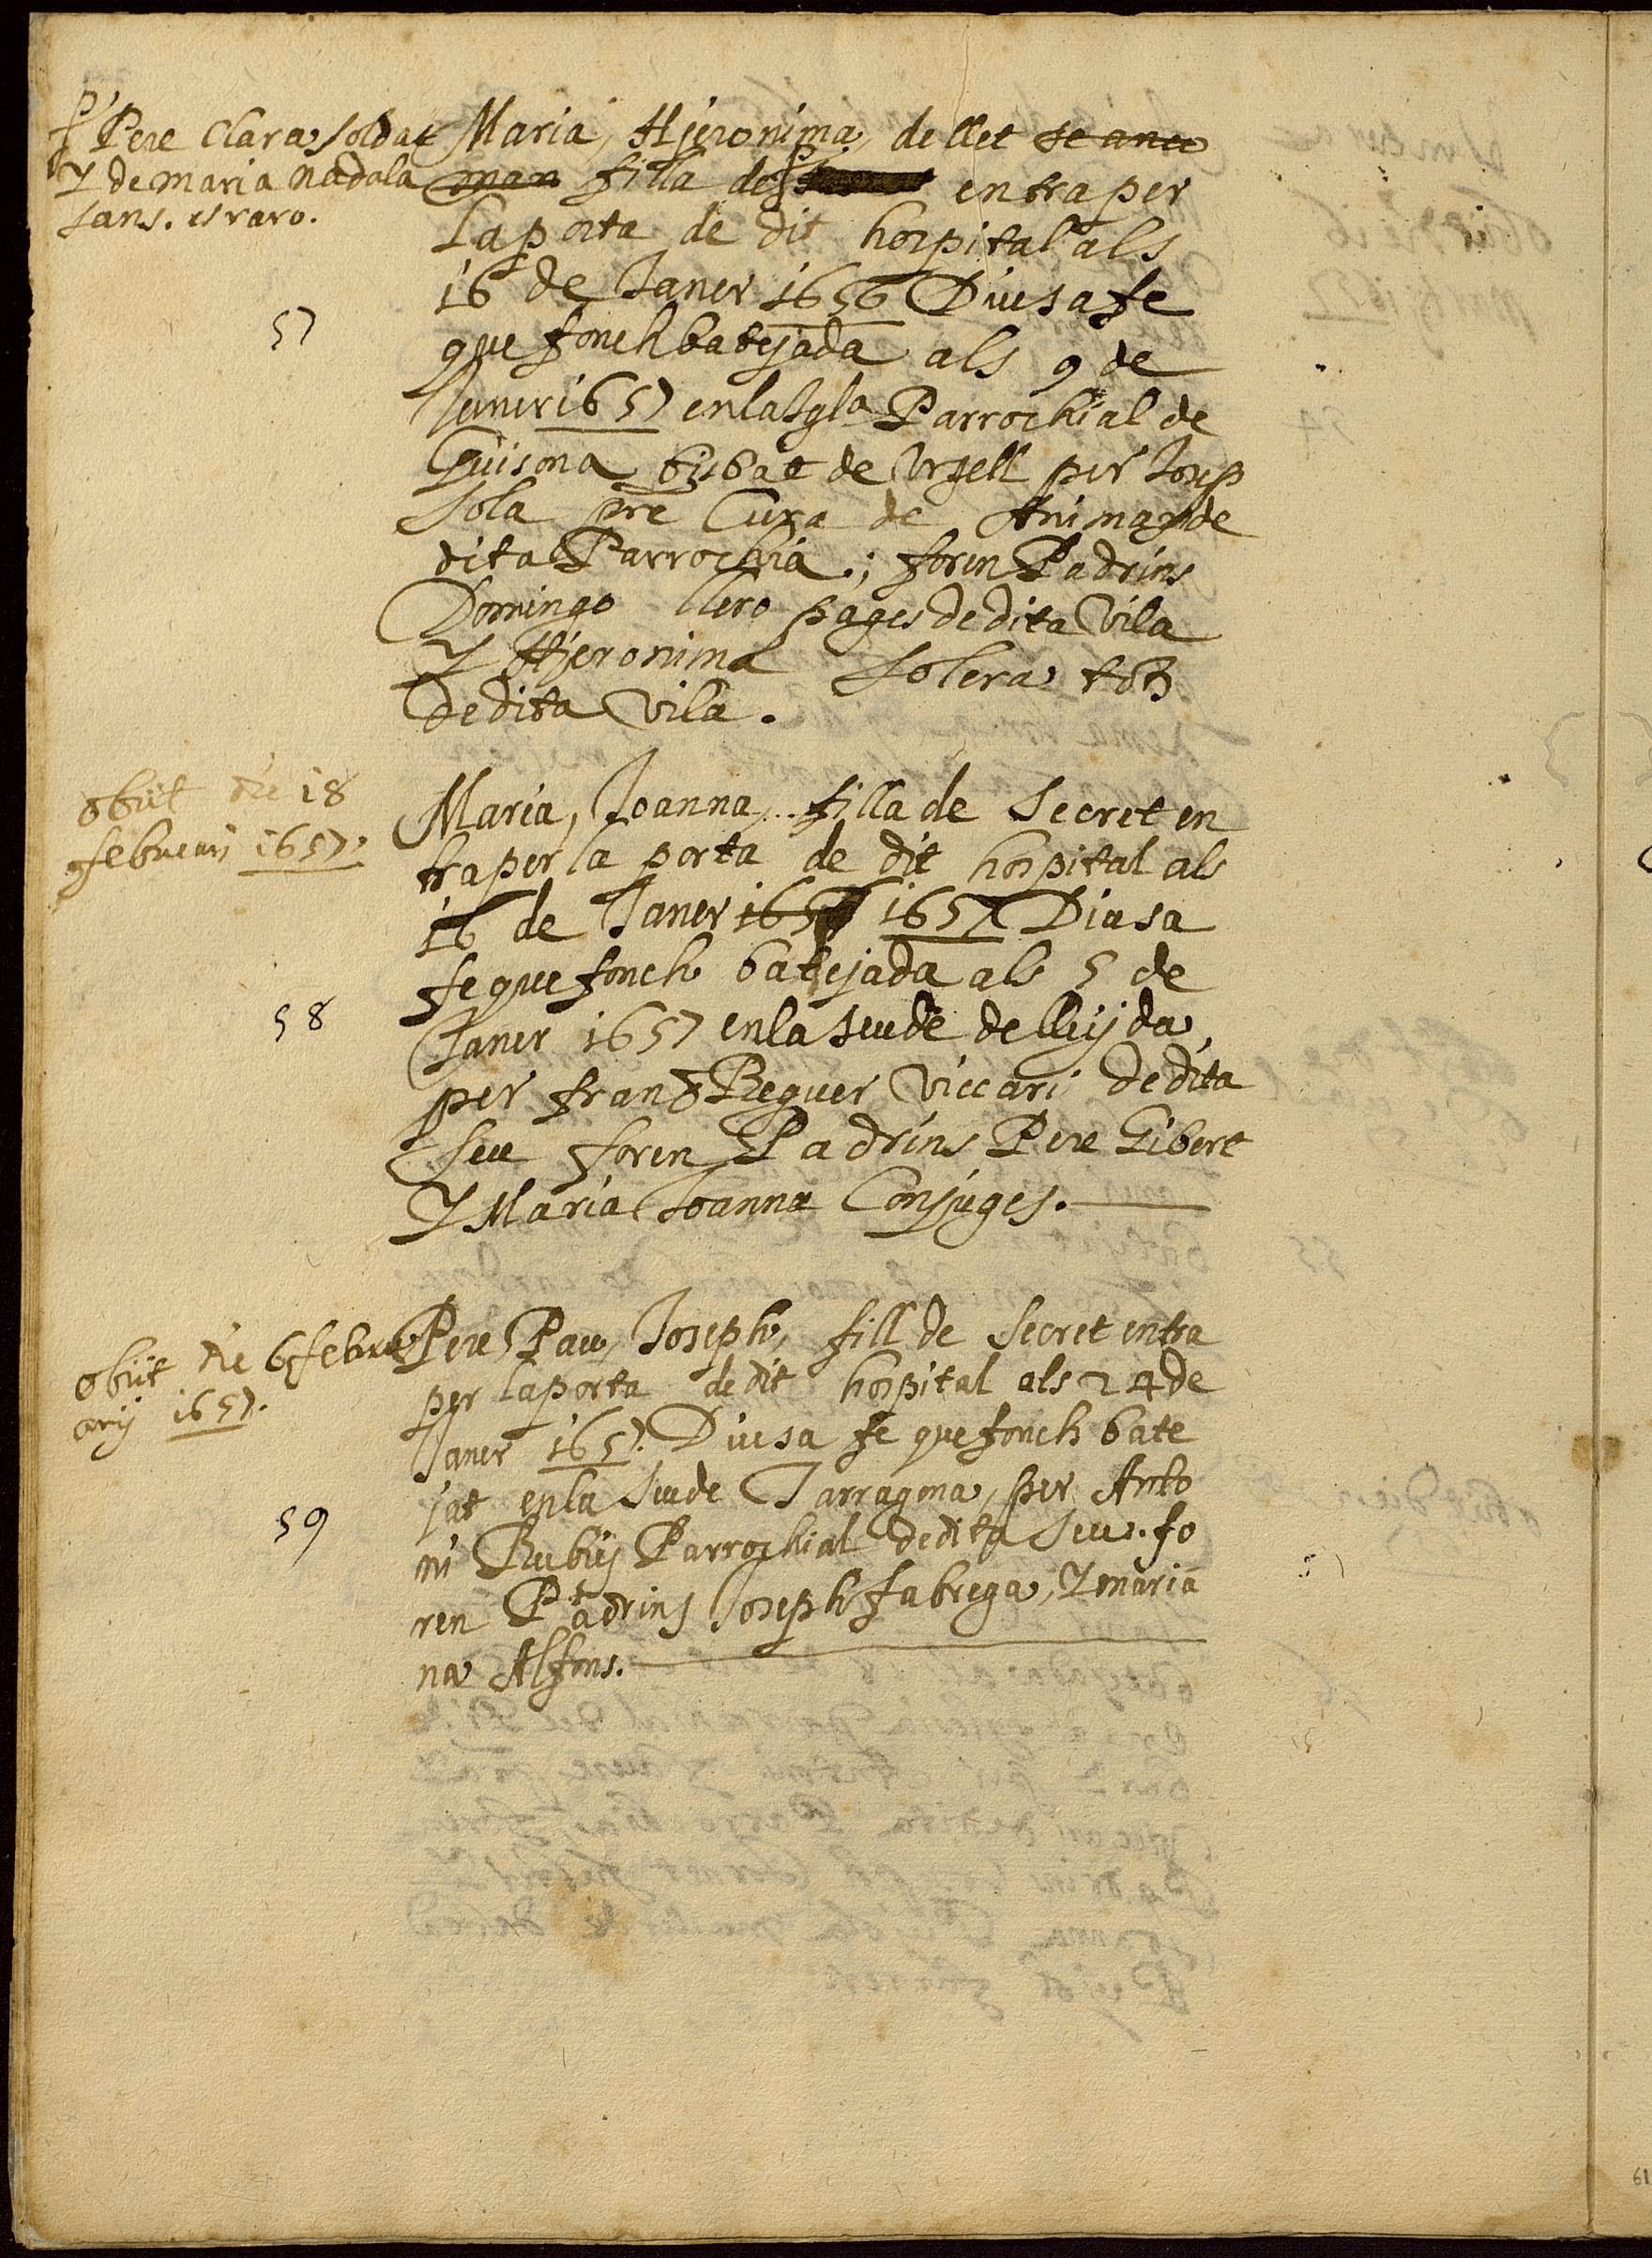 Pere Clara soldat
y de maria nadala
sans. es raro.
Maria, Hjeronima, de llet se aneo
man filla de entra per
la porta de dit hospital als
16 de Janer 1656 Diu sa fe
57
que fonch batejada als 9 de
Janer 1657 en la Igla Parrochial de
Guisona bisbat de Urgell per Josep
Sola pre Cura de Animas de
dita Parrochia; foren Padrins
Domingo llero pages de dita Vila
y Hjeronima Solera tots
de dita Vila.
obiit die 18
februarij 1657.
Maria, Joanna, filla de Secret en
tra per la porta de dit hospital als
16 de Janer 165 1657 Diu sa
fe que fonch batejada als 5 de
58
Janer 1657 en la seu de de lleijda,
per fran Reguer Viccari de dita
seu foren Padrins Pere Gibert
y Maria Joanna Conjuges.
obiit die 6 febru
arij 1657.
Pere, Pau, Joseph, fill de Secret entra
per la porta de dit hospital als 24 de
Janer 1657. Diu sa fe que fonch bate
jat en la seu de Tarragona, per Anto
59
ni Rubij Parrochial de dita Seu. fo
ren Padrins Joseph fabrega, y maria
na Alfons.
61